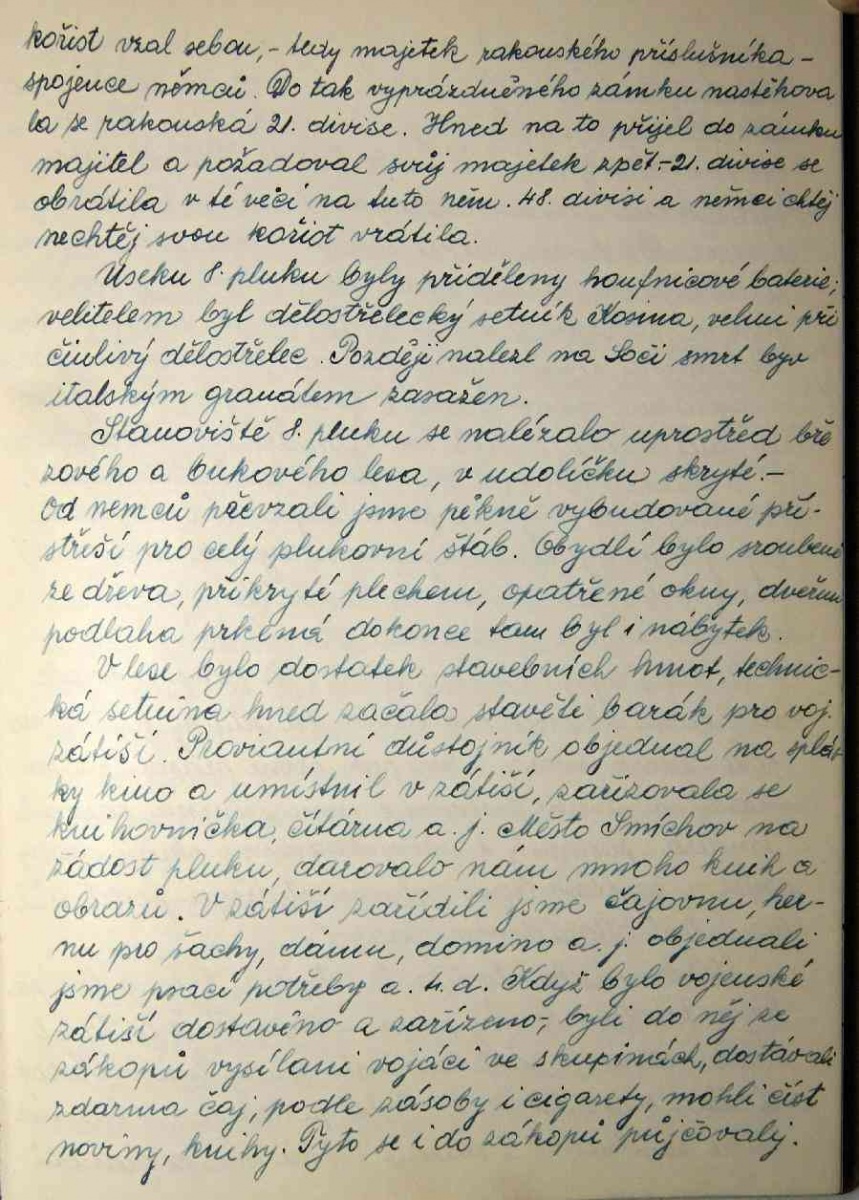 kořist vzal sebou, - tedy majetek rakouského příslušníka -
spojence němců. Do tak vyprázdněného zámku nastěhova
la se rakouská 21. divise. Hned na to přijel do zámku
majitel a požadoval svůj majetek zpět. - 21. divise se
obrátila v té věci na tuto něm. 48. divisi a němci chtěj
nechtěj svou kořist vrátila.
Úseku 8. pluku byly přiděleny houfnicové baterie;
velitelem byl dělostřelecký setník Kosina, velmi při
činlivý dělostřelec. Později nalezl na Soči smrt byv
italským granátem zasažen.
Stanoviště 8. pluku se nalézalo uprostřed bře
zového a bukového lesa, v udolíčku skryté. -
Od nemců převzali jsme pěkně vybudované pří-
střeší pro celý plukovní štáb. Obydlí bylo sroubené
ze dřeva, přikryté plechem, opatřené okny, dveřmi
podlaha prkenná dokonce tam byl i nábytek.
V lese bylo dostatek stavebních hmot, technic-
ká setnina hned začala stavěti barák pro voj.
zátiší. Proviantní důstojník objednal na splát
ky kino a umístnil v zátiší, zařizovala se
knihovnička, čítárna a. j. Město Smíchov na
žádost pluku, darovalo nám mnoho knih a
obrazů. V zátiší zařídili jsme čajovnu, her-
nu pro šachy, dámu, domino a. j. objednali
jsme psací potřeby a. t. d. Když bylo vojenské
zátiší dostavěno a zařízeno, byli do něj ze
zákopů vysíláni vojáci ve skupinách, dostávali
zdarma čaj, podle zásoby i cigarety, mohli číst
noviny, knihy. Tyto se i do zákopů půjčovaly.